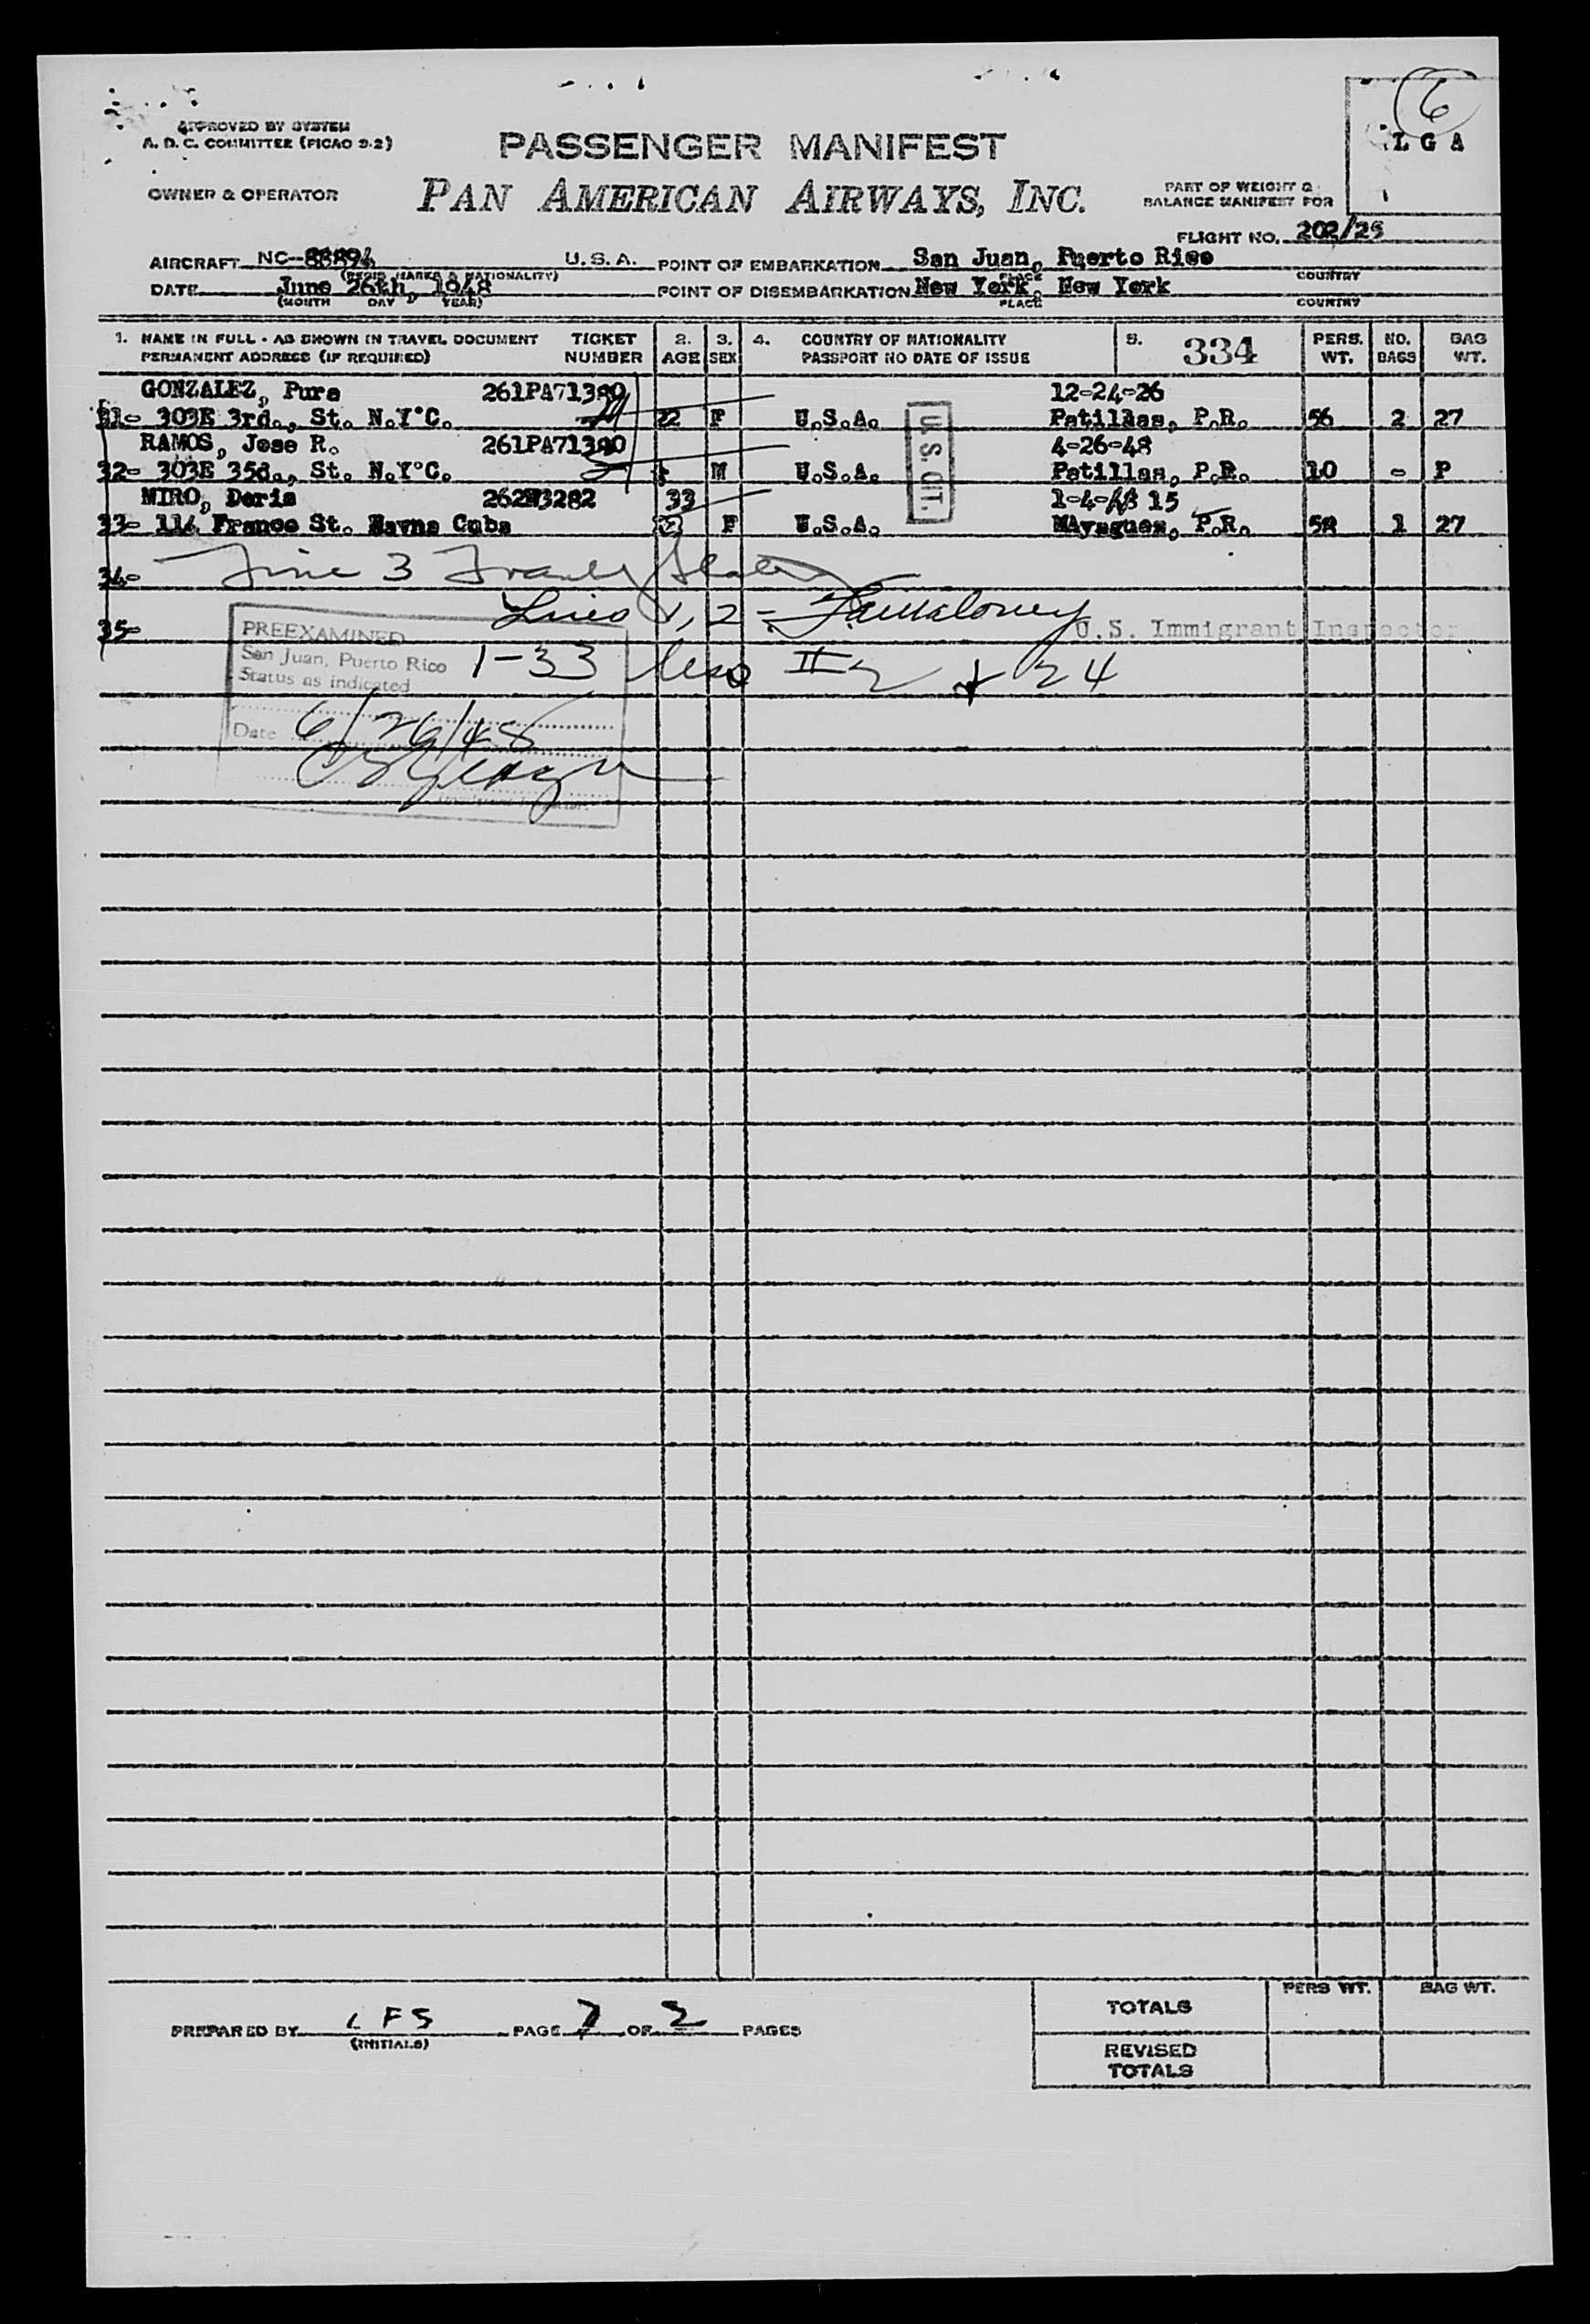 6
APPROVED BY SYSTEM
A. D. C. COMMITTEE (FICAO 9-2)
L G A
PASSENGER MANIFEST
OWNER & OPERATOR
PAN AMERICAN AIRWAYS, INC.
PART OF WEIGHT &
BALANCE MANIFEST FOR
FLIGHT NO. 202/25
AIRCRAFT NC-88894 U.S.A. POINT OF EMBARKATION San Juan, Puerto Rico
(REGIS. MARKS & NATIONALITY) PLACE COUNTRY
DATE June 26th, 1948 POINT OF DISEMBARKATION New York, New York
(MONTH DAY YEAR) PLACE COUNTRY
1. NAME IN FULL - AS SHOWN IN TRAVEL DOCUMENT TICKET 2. 3. 4. COUNTRY OF NATIONALITY 5. 334 PERS. NO. BAG
PERMANENT ADDRESS (IF REQUIRED) NUMBER AGE SEX PASSPORT NO DATE OF ISSUE WT. BAGS WT.
GONZALEZ, Pura 261PA71390 12-24-26
31- 303E 3rd., St. N.Y°C. 22 F U.S.A. Patillas, P.R. 56 2 27
RAMOS, Jose R. 261PA71390 4-26-48
32- 303E 35d., St. N.Y°C. M U.S.A. Patillas, P.R. 10 - P
U.S. CIT.
MIRO, Doris 262N3282 33 1-4-48 15
33- 114 France St. Havna Cuba F U.S.A. MAyaguez, P.R. 58 1 27
34- Line 3
35- Lines 1, 2 -
U.S. Immigrant Inspector
PREEXAMINED
San Juan, Puerto Rico
Status as indicated
1-33 less 2 + 24
Date 6/26/48
Immigrant Inspector
PERS WT. BAG WT.
TOTALS
PREPARED BY LFS PAGE 2 OF 2 PAGES
(INITIALS)
REVISED
TOTALS